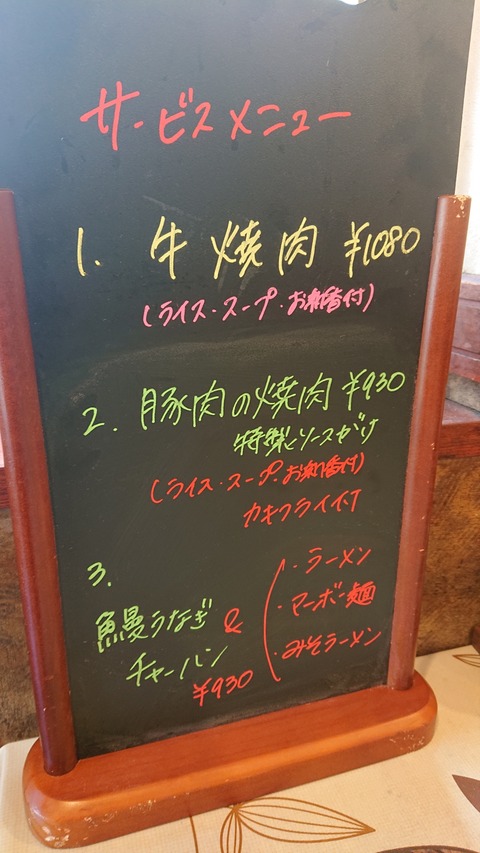 サービスメニュー
1. 牛焼肉 ¥1080
(ライス・スープ・お新香付)
2. 豚肉の焼肉 ¥930
特製ソースがけ
(ライス・スープ・お新香付)
カキフライ付
3.
鰻うなぎ &
チャーハン
¥930
・ラーメン
・マーボー麺
・みそラーメン